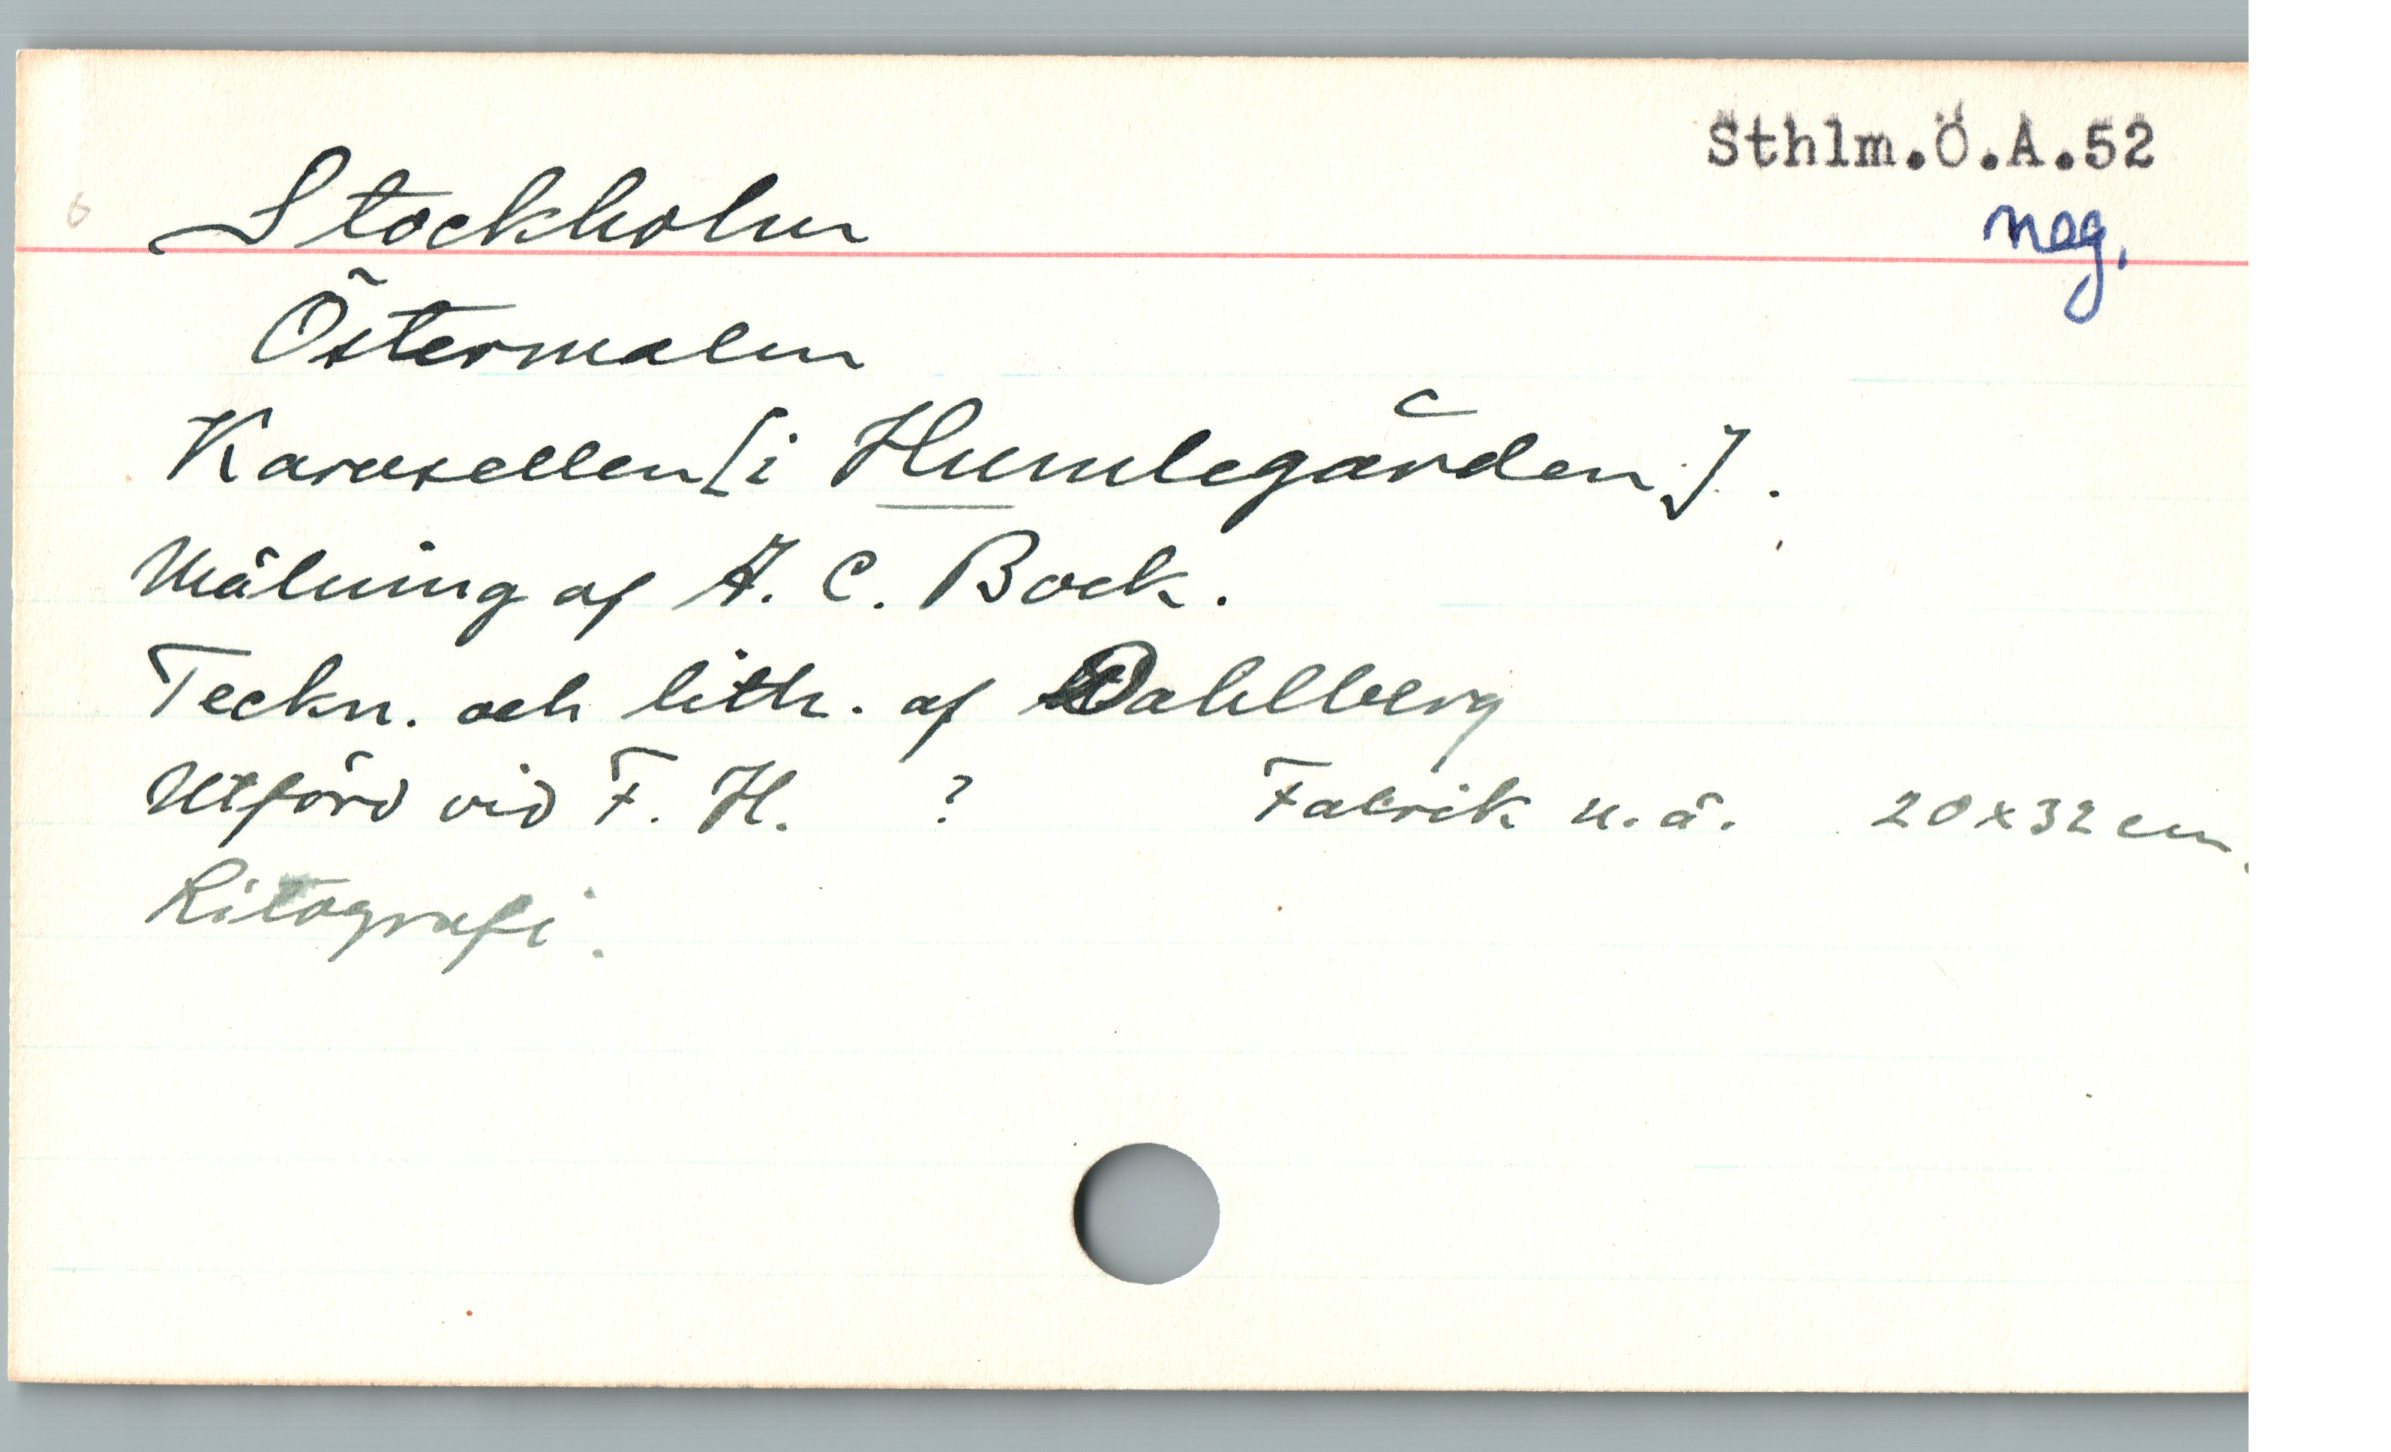 Sthlm.Ö.A.52
6 Stockholm
neg.
Östermalm
Karusellen [i Humlegården].
Målning af A. C. Bock.
Teckn. och lith. af Dahlberg
Utförd vid F. H. ? Fabrik u. å. 20x32 cm.
Litografi.